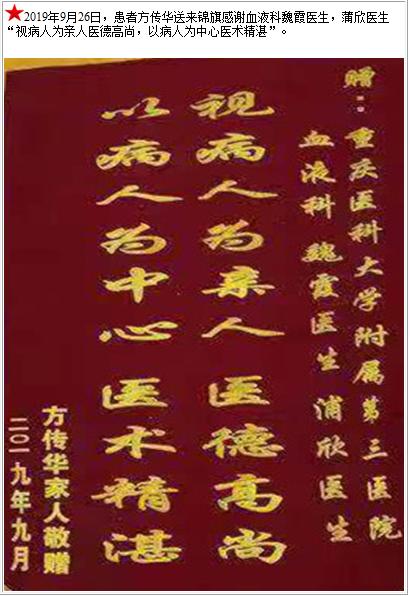 ★2019年9月26日，患者方传华送来锦旗感谢血液科魏霞医生，蒲欣医生
“视病人为亲人医德高尚，以病人为中心医术精湛”。
赠：重庆医科大学附属第三医院
血液科 魏霞医生 浦欣医生
视病人为亲人 医德高尚
以病人为中心 医术精湛
方传华家人敬赠
二〇一九年九月